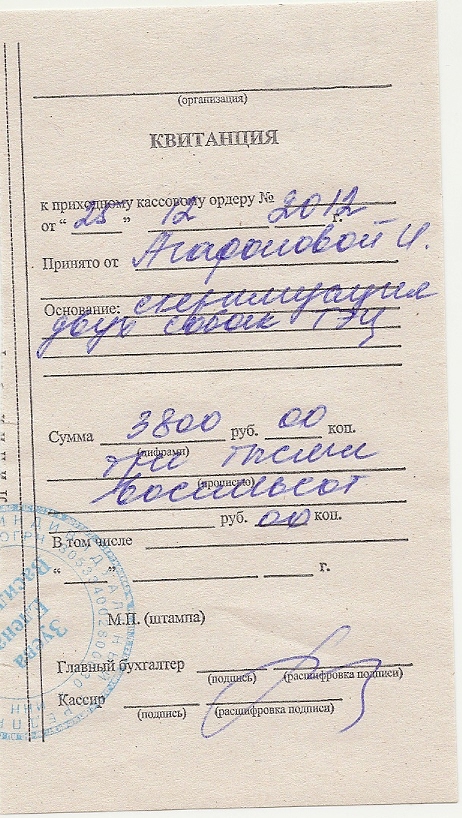 (организация)
КВИТАНЦИЯ
к приходному кассовому ордеру №
от “ 25 ” 12 2012 г.
Принято от Агафоновой И.
Основание: стерилизация
двух собак ТЭЦ
Сумма 3800 руб. 00 коп.
(цифрами)
три тысячи
(прописью)
восемьсот
руб. 00 коп.
В том числе
“ ” г.
М.П. (штампа)
Главный бухгалтер
(подпись) (расшифровка подписи)
Кассир
(подпись) (расшифровка подписи)
Зуева
Елена
ОГРН